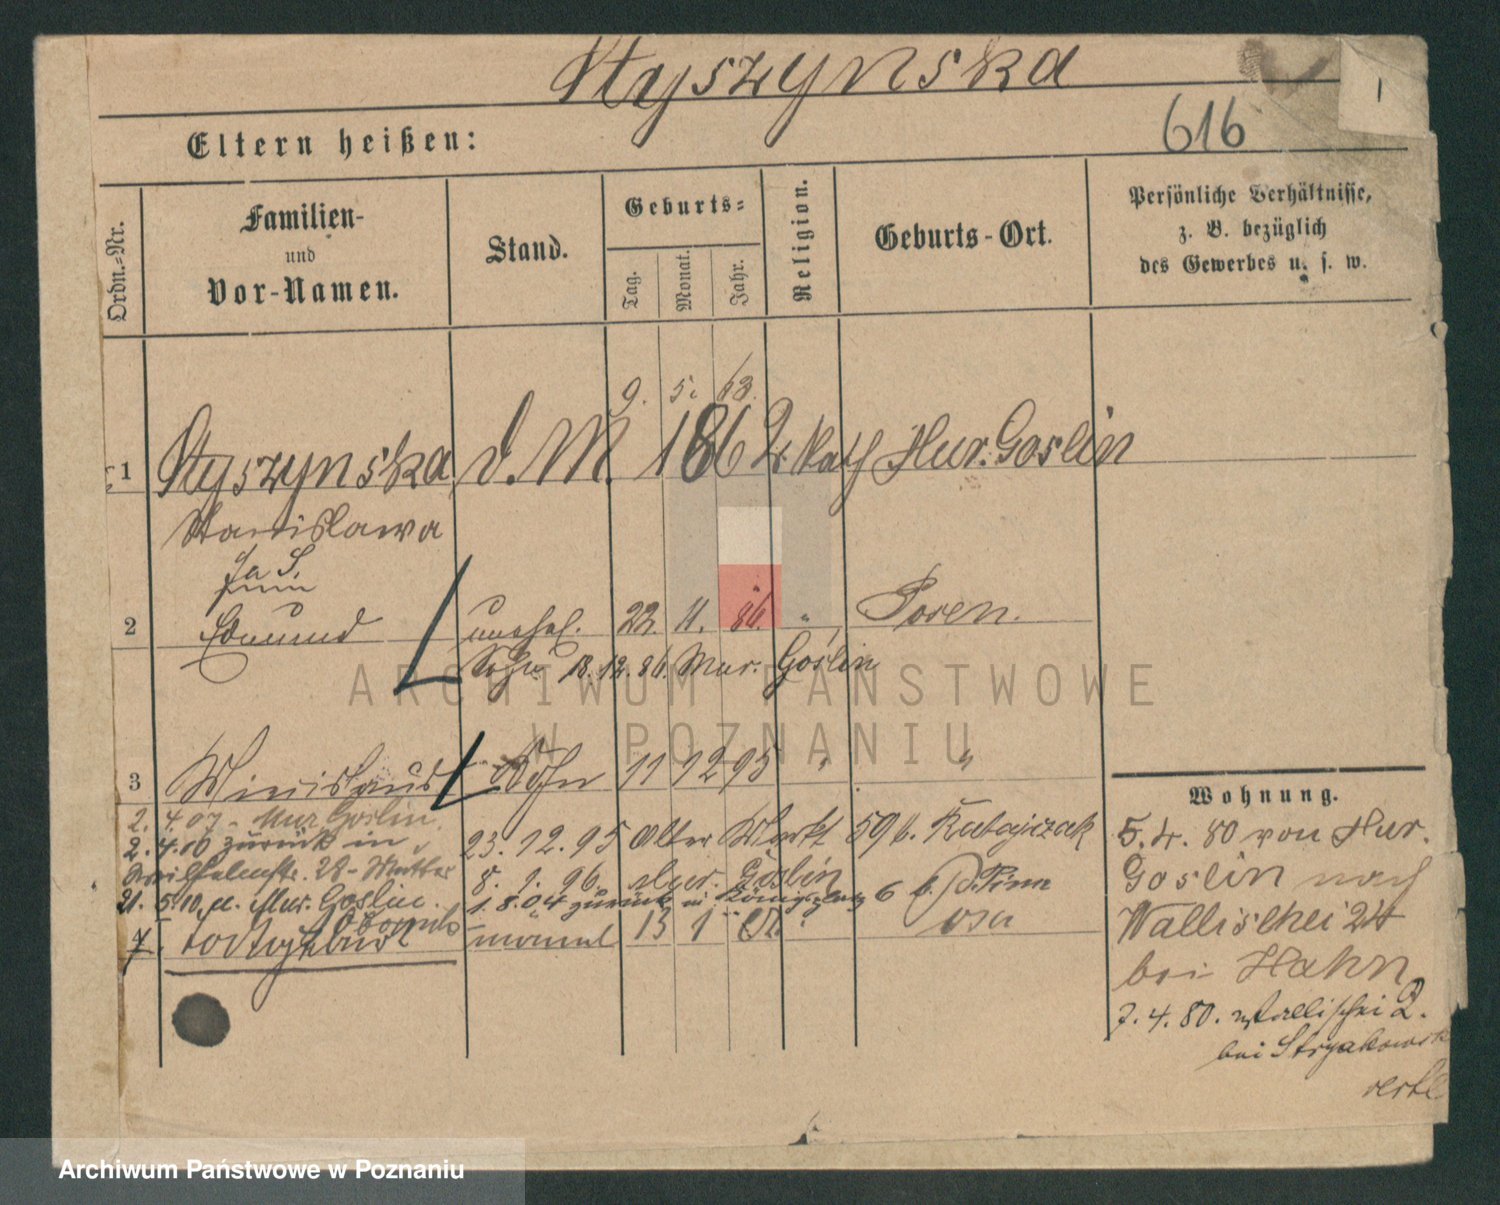 Styszynska
1
616
Eltern heißen:
Ordn.-Nr.
Familien-
und
Vor-Namen.
Stand.
Geburts-
Tag.
Monat.
Jahr.
Religion.
Geburts-Ort.
Persönliche Verhältnisse,
z. B. bezüglich
des Gewerbes u. s. w.
9. 5. 63.
1 Styszynska d. M. 1862 kath Mur. Goslin
Stanislawa
2 Edmund unehel. 22. 11. 86. " Posen.
Sohn 18. 12. 86. Mur. Goslin
ARCHIWUM PAŃSTWOWE
W POZNANIU
3 Sohn 11 12 95 " "
Wohnung.
2. 4. 07 - Mur Goslin.
2. 4. 10 zurück in
23. 12. 95 Alter Markt 59 b. Ratajczak
28 - Mutter
8. 1. 96. Mur. Goslin
21. 5. 10. Mur. Goslin.
1. 8. 04 zurück in Königsplatz 6 b.
4. 13 1
5. 4. 80 von Mur.
Goslin nach
Wallischei 24
bei Hahn
7. 4. 80. Wallischei 2.
bei
Archiwum Państwowe w Poznaniu